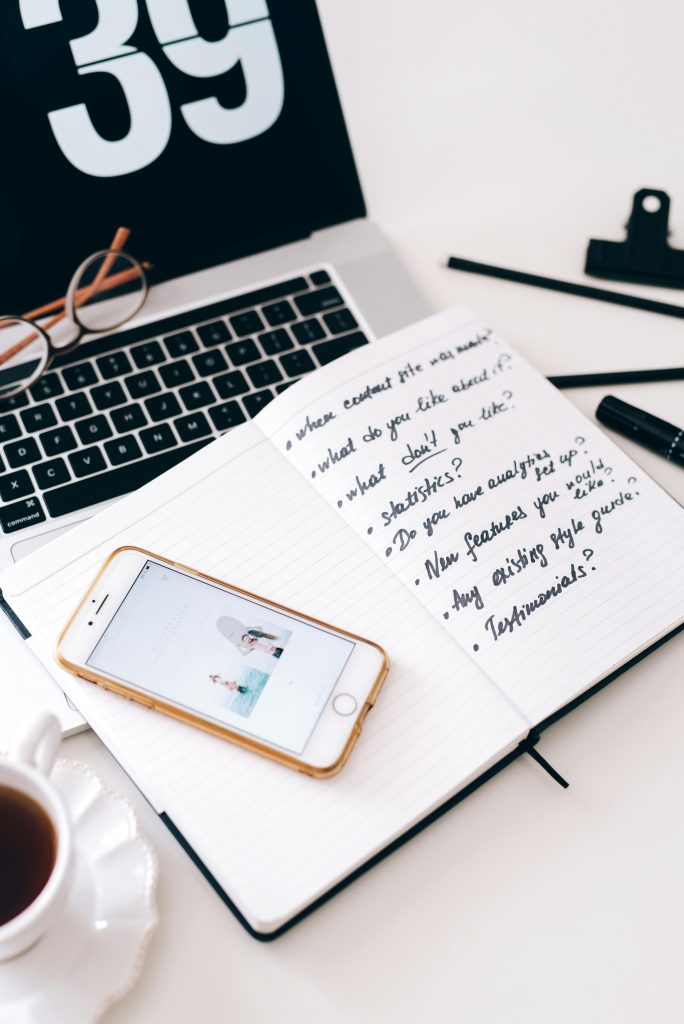 39
R T Y U I
D F G H J K
X C V B N M
command
• when content site was made?
• what do you like about it?
• what don't you like?
• statistics?
• Do you have analytics
set up?
• New features you would
like?
• Any existing style guide?
• Testimonials?